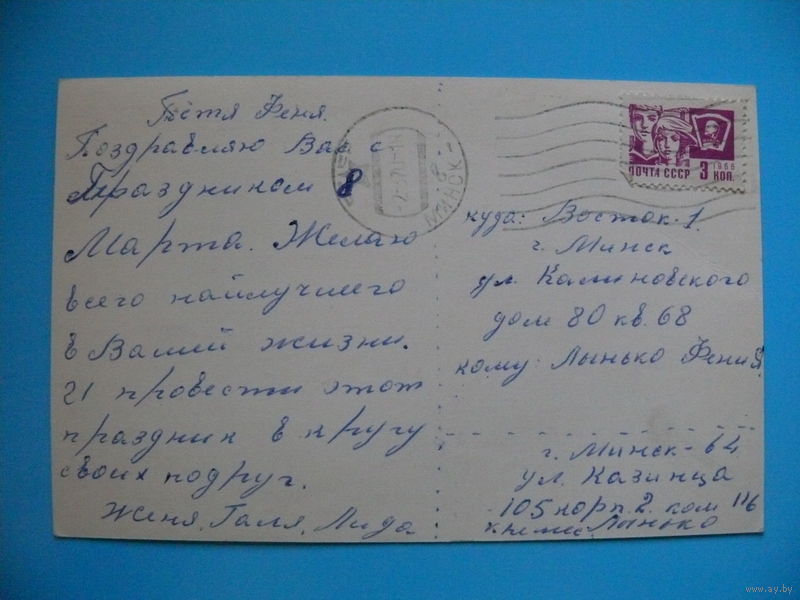 Тётя Феня.
Поздравляю Вас с
Праздником 8
Марта. Желаю
всего найлучшего
в Вашей жизни.
И провести этот
праздник в кругу
своих подруг.
Женя, Галя, Лида
МИНСК - 8
ПОЧТА СССР 3 КОП.
1966
куда: Восток-1.
г. Минск
ул. Калиновского
дом 80 кв. 68
кому: Лынько Феня
г. Минск-64
ул. Казинца
105 корп. 2. ком 116
Лынько
www.ay.by